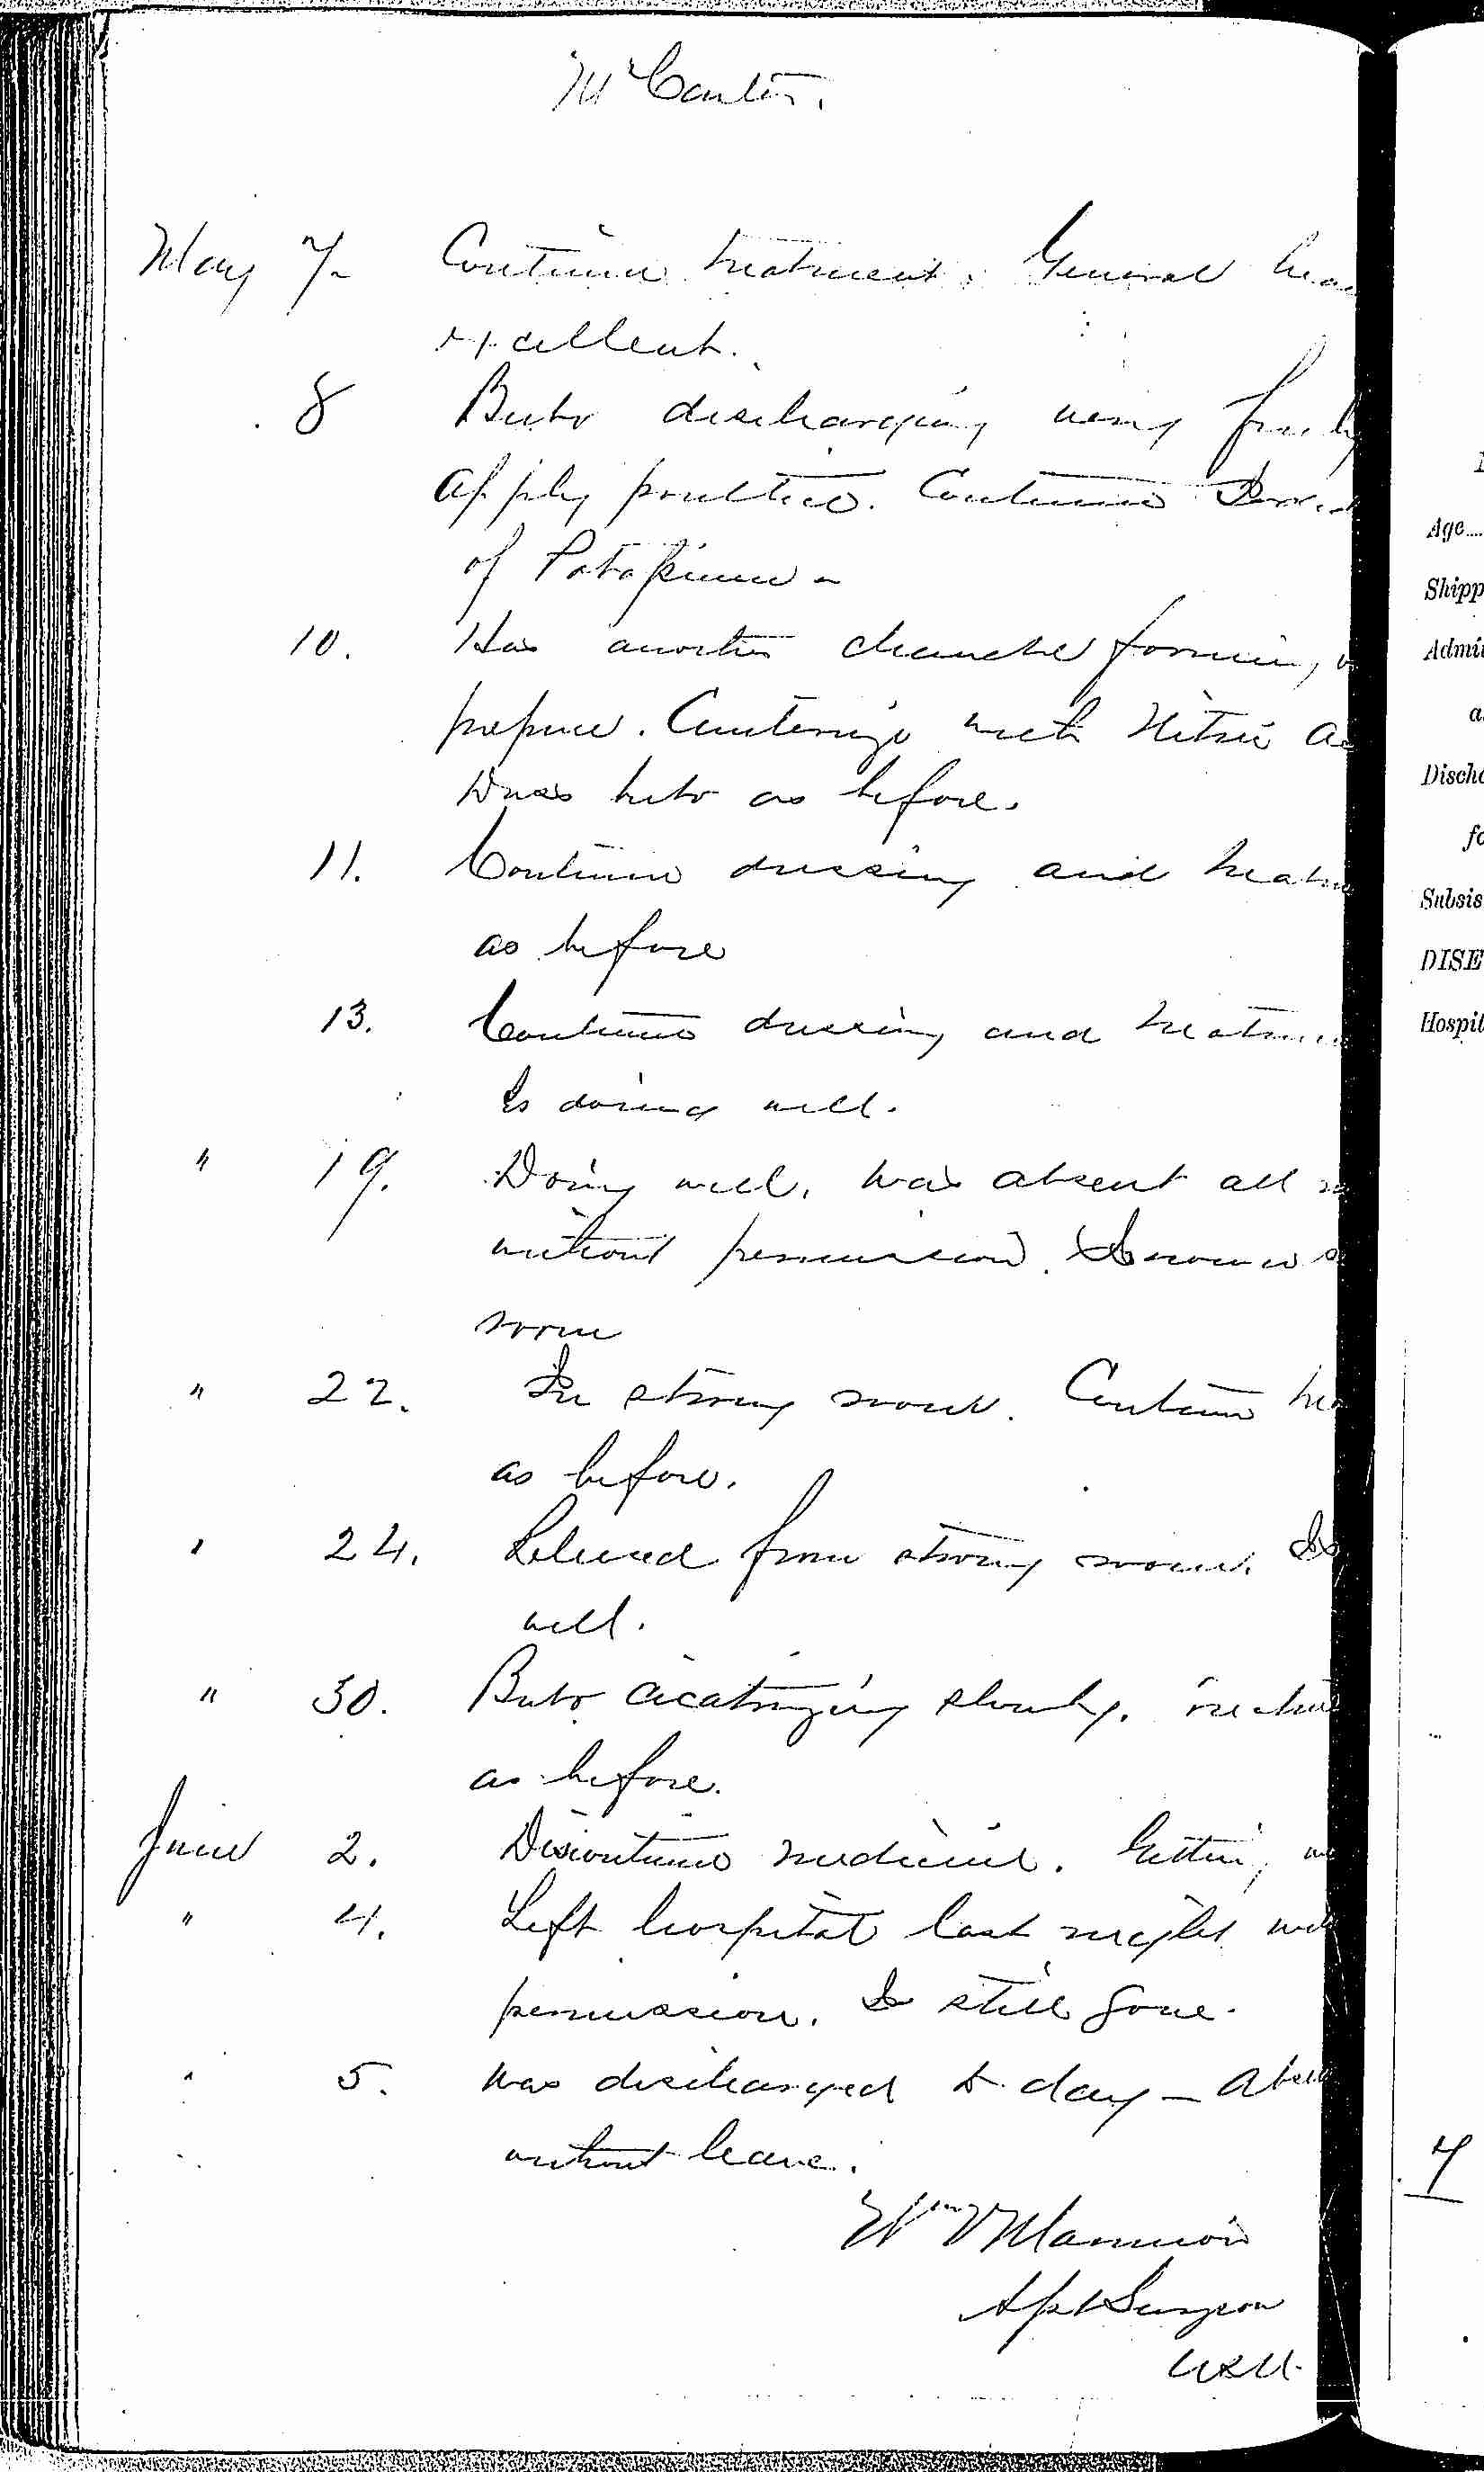 McCarter.
May 7. Continue treatment. General hea
excellent.
8 Bubo discharging very freely
apply poultice. Continue Iodid
of Potassium -
10. Has another chancre forming, o
prepuce. Cauterize with Nitric ac
Dress bubo as before.
11. Continue dressing and treatm
as before
13. Continue dressing and treatm
Is doing well.
" 19. Doing well. was absent all n
without permission. Is now in s
room
" 22. In strong room. Continue trea
as before.
" 24. Released from strong room. Is
well.
" 30. Bubo cicatrizing slowly. 
as before.
June 2. Discontinue medicine. Getting we
" 4. Left hospital last night with
permission. Is still gone.
" 5. was discharged to day - Absen
without leave.
Wm
Asst Surgeon
USN.
Age
Shipp
Admi
a
Discha
fo
Subsis
DISE
Hospit
7